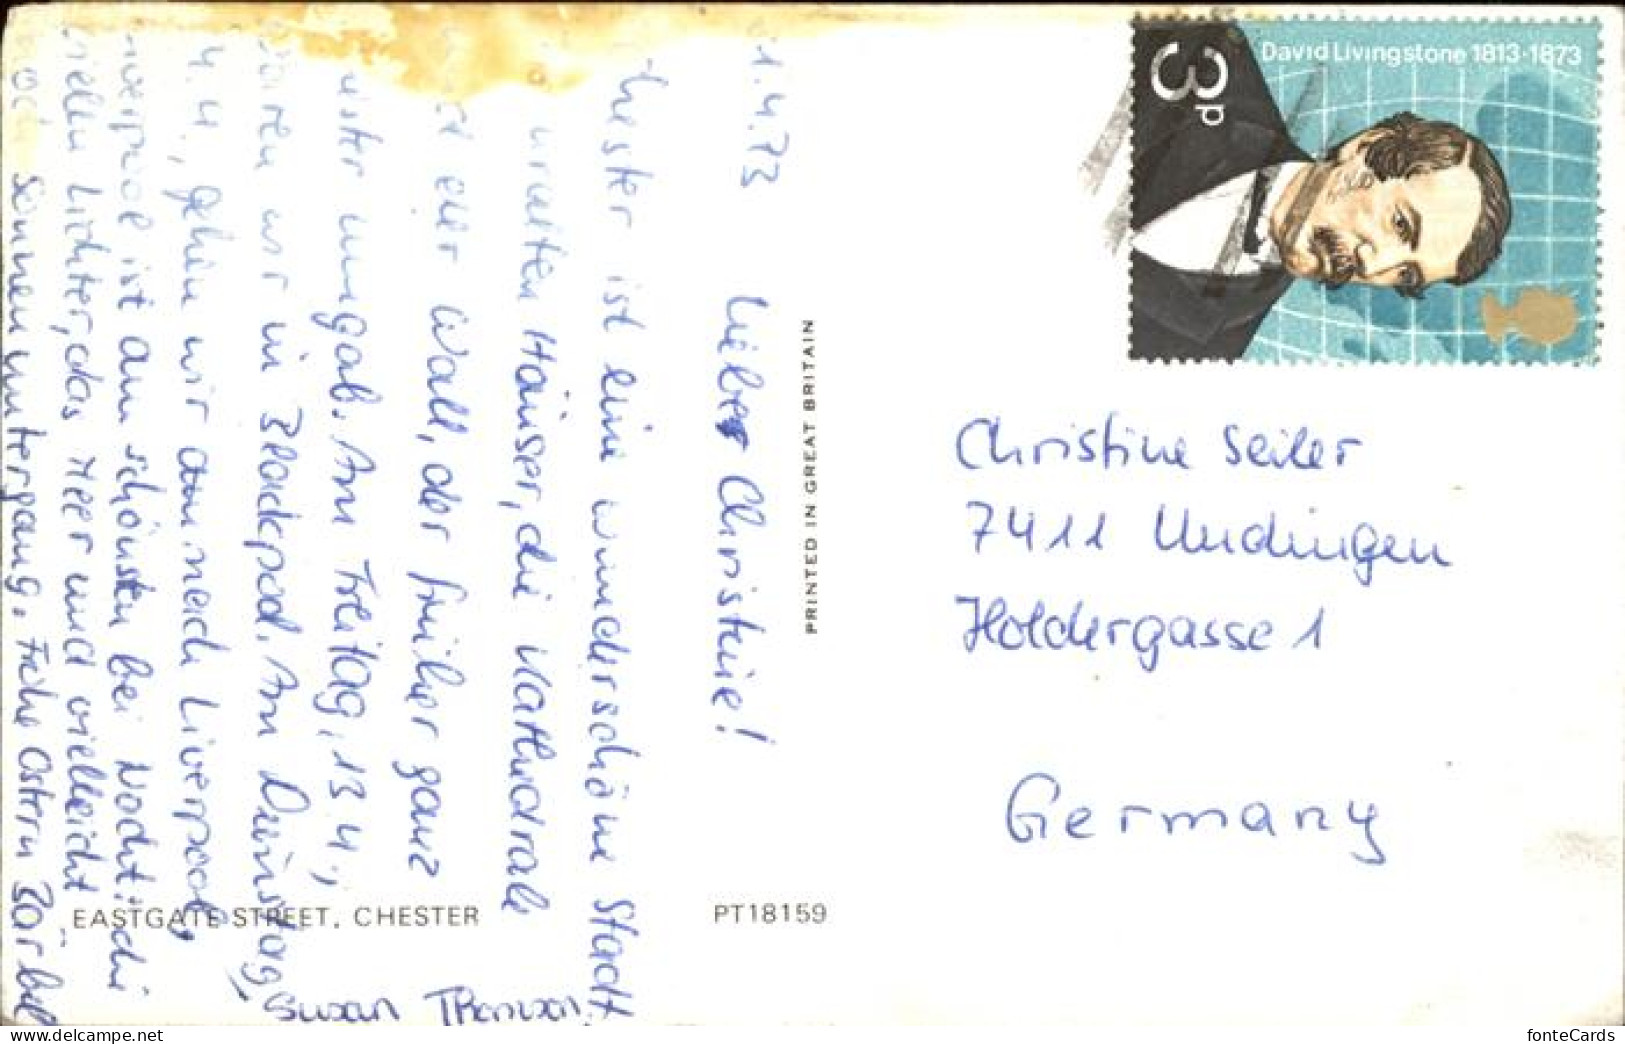 1.4.73
Liebe Christine!
Chester ist eine wunderschöne Stadt
uralten Häuser, die Kathedrale
der Wall, der früher ganz
umgab. Am Freitag, 13.4.,
waren wir in Blackpool. Am Dienstag,
4.4., gehen wir nach Liverpool,
Liverpool ist am schönsten bei Nacht: die
vielen Lichter, das Meer und vielleicht
Sonnenuntergang. Frohe Ostern Bärbel
Susan Thomson
EASTGATE STREET, CHESTER
PT18159
PRINTED IN GREAT BRITAIN
David Livingstone 1813-1873
3p
Christine Seiler
7411 Undingen
Holdergasse 1
Germany
fonteCards